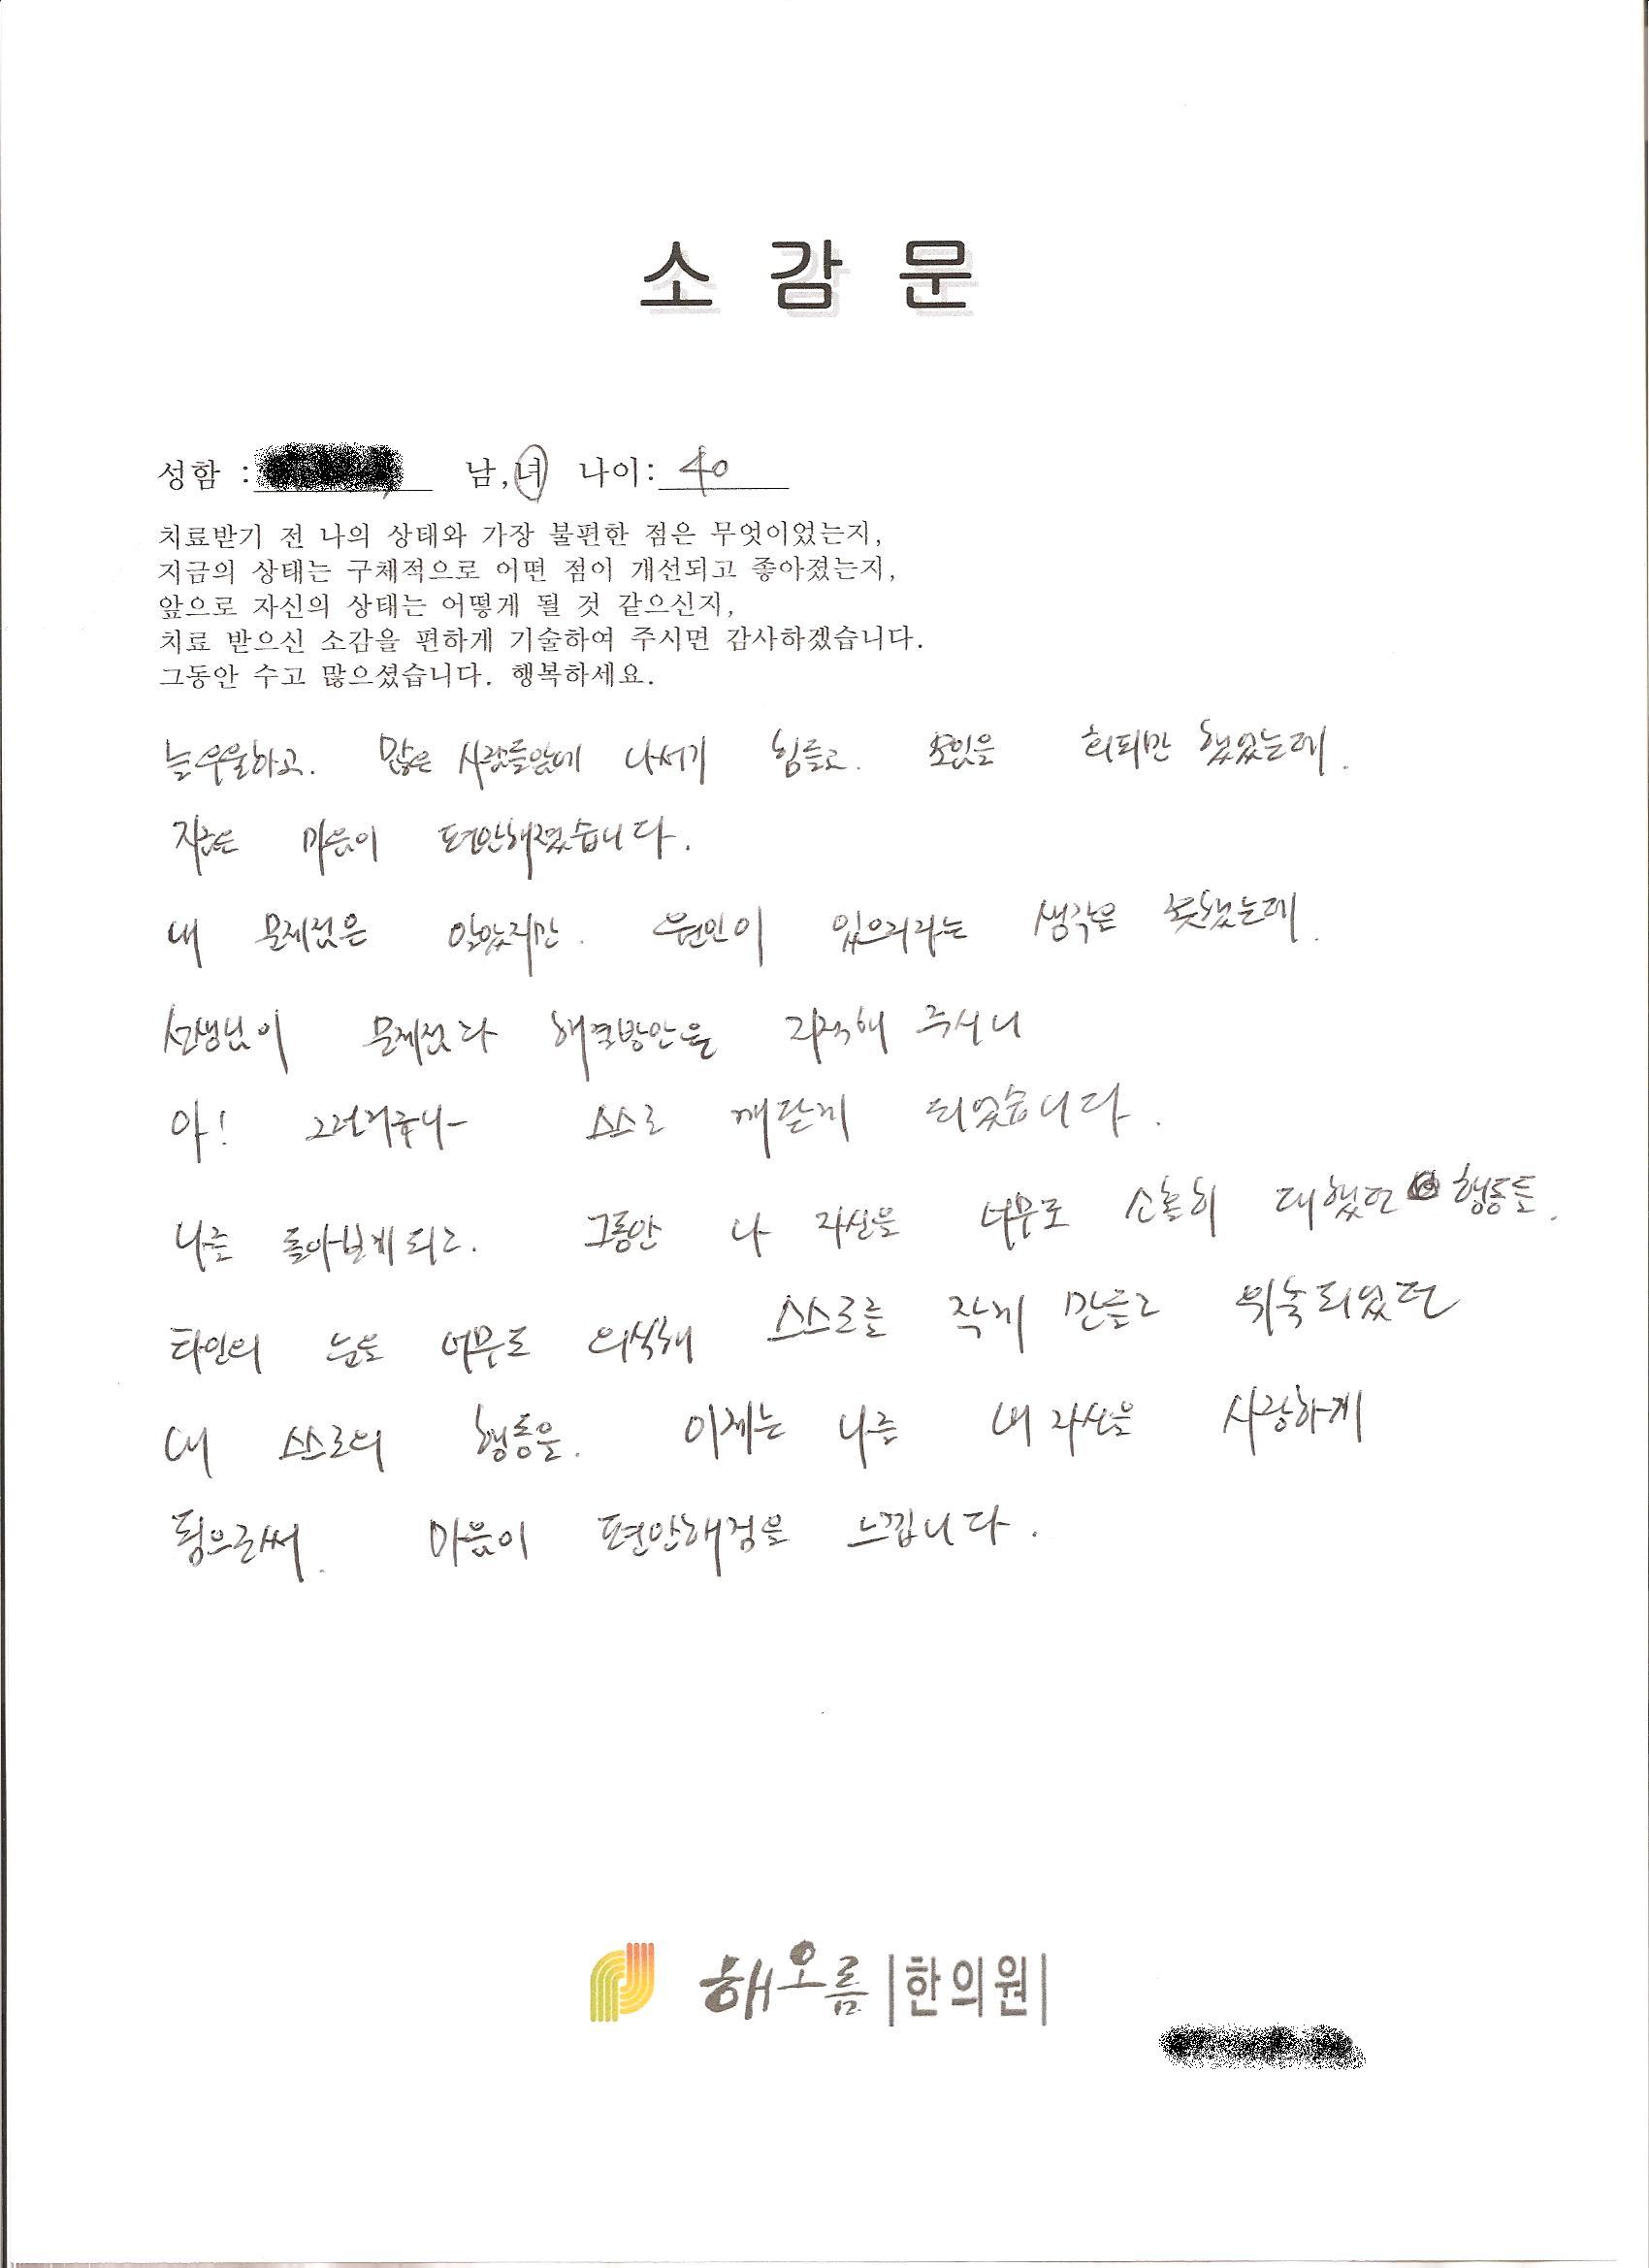 소 감 문
성함 : 남,녀 나이: 40
치료받기 전 나의 상태와 가장 불편한 점은 무엇이었는지,
지금의 상태는 구체적으로 어떤 점이 개선되고 좋아졌는지,
앞으로 자신의 상태는 어떻게 될 것 같으신지,
치료 받으신 소감을 편하게 기술하여 주시면 감사하겠습니다.
그동안 수고 많으셨습니다. 행복하세요.
늘 우울하고. 많은 사람들앞에 나서기 힘들고. 모임은 회피만 했었는데.
지금은 마음이 편안해졌습니다.
내 문제점은 알았지만. 원인이 있으리라는 생각은 못했는데.
선생님이 문제점과 해결방안을 지적해 주시니
아! 그런거구나~ 스스로 깨닫게 되었습니다.
나를 돌아보게되고. 그동안 나 자신을 너무도 소홀히 대했던 행동들.
타인의 눈을 너무도 의식해 스스로를 작게 만들고 위축되었던
내 스스로의 행동을. 이제는 나를 내 자신을 사랑하게
됨으로써. 마음이 편안해짐을 느낍니다.
해오름 |한의원|